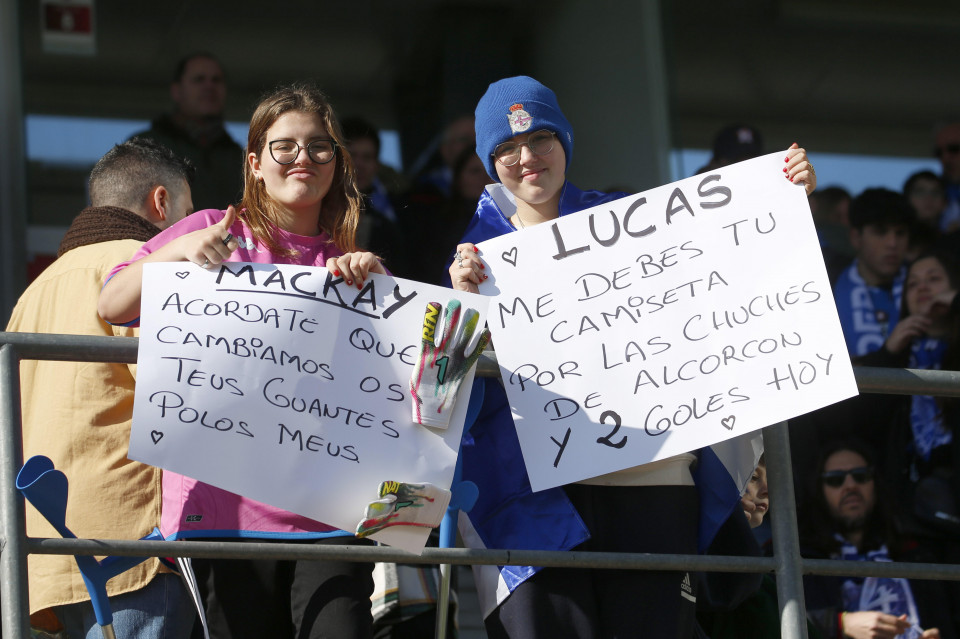 MACKAY
ACORDATE QUE
CAMBIAMOS OS
TEUS GUANTES
POLOS MEUS
1
LUCAS
ME DEBES TU
CAMISETA
POR LAS CHUCHES
DE ALCORCON
Y 2 GOLES HOY